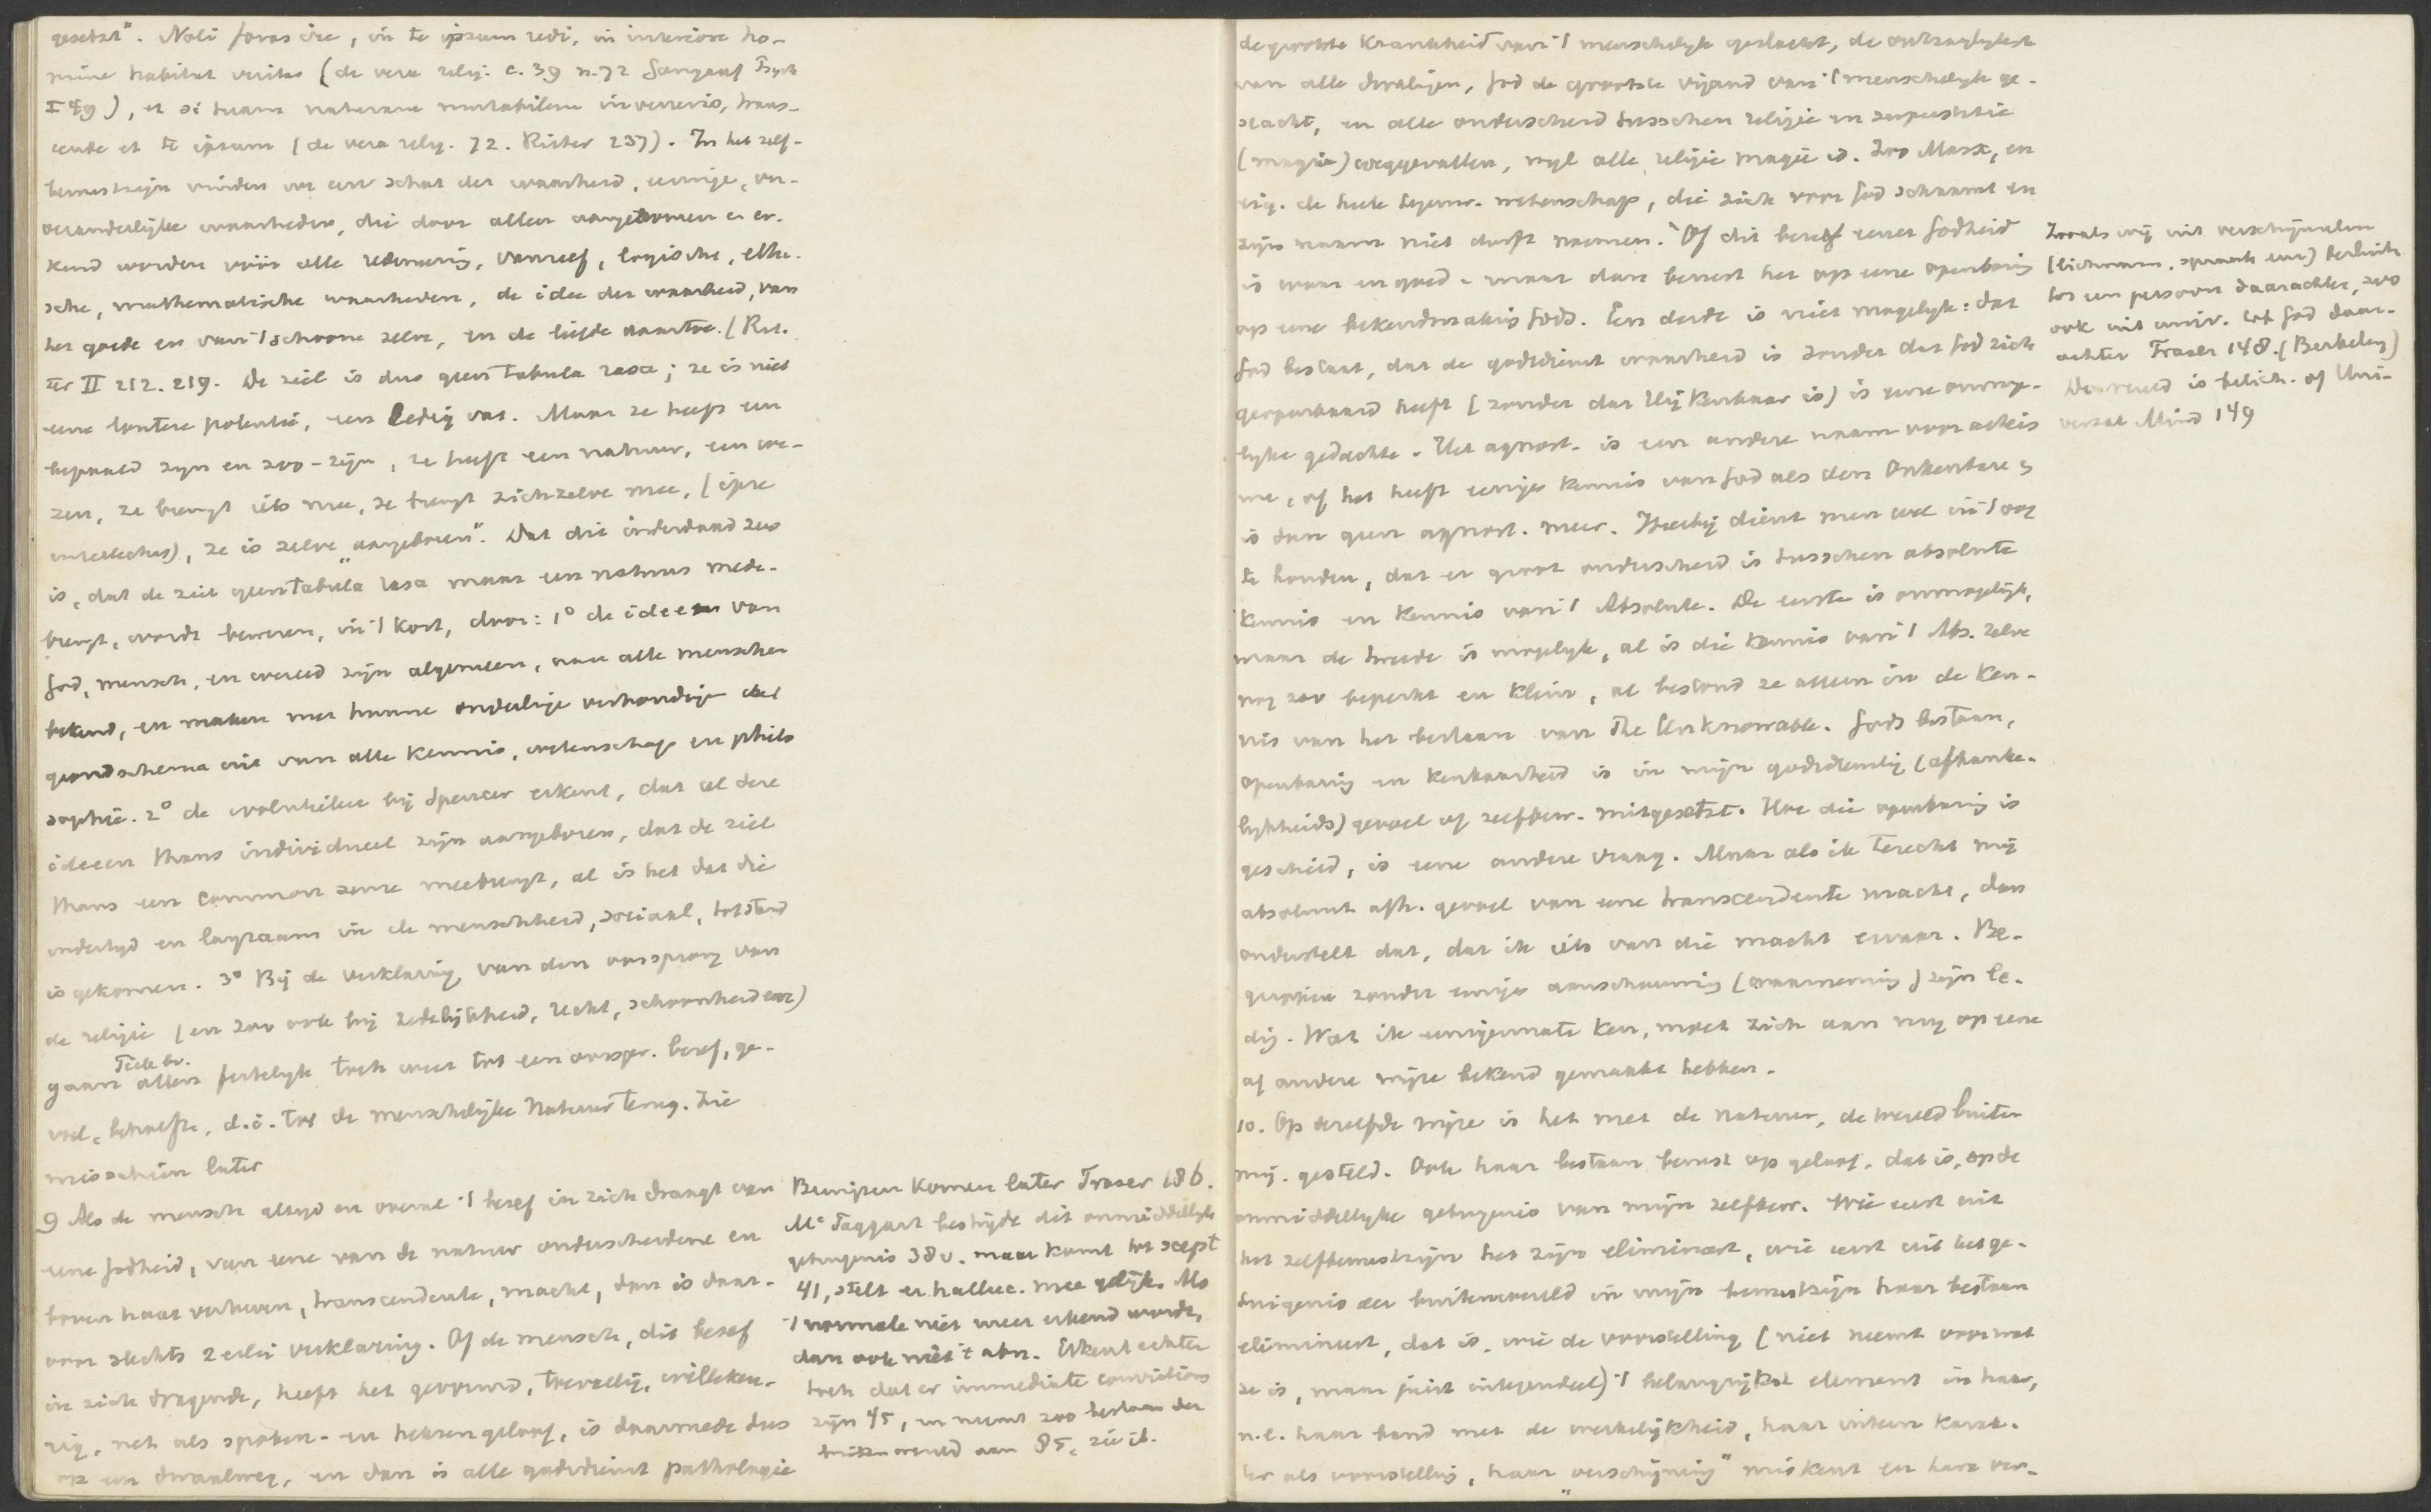 gesetzt". Noli foras ire, in te ipsum redi, in interiore ho-
mine habitat veritas (de vera relig. c. 39 n. 72 Psych
I 49), et si tuam naturam mutabilem inveneris, trans-
cende et te ipsum (de vera relig. 72. Ritter 237). In het zelf-
bewustzijn vinden we een schat der waarheid, eeuwige, on-
veranderlijke waarheden, die door allen aangenomen en er-
kend worden vóór alle redeneering, vanzelf, logische, ethi-
sche, mathematische waarheden, de idee der waarheid, van
het goede en van 't schoone zelve, en de liefde daartoe. (Rit-
ter II 212. 219. De ziel is dus geen tabula rasa; ze is niet
eene loutere potentie, een ledig vat. Maar ze heeft een
bepaald zijn en zoo-zijn, ze heeft een natuur, een we-
zen, ze brengt iets mee, ze brengt zichzelve mee, (ipse
intellectus), ze is zelve "aangeboren". Dat dit inderdaad zoo
is, dat de ziel geen tabula rasa maar een natuur mede-
brengt, wordt bewezen, in 't kort, door: 1° de ideeen van
God, mensch, en wereld zijn algemeen, aan alle menschen
bekend, en maken met hunne onderlinge verhouding het
grondschema uit van alle kennis, wetenschap en philo
sophie. 2° de evolutieleer bij Spencer erkent, dat al deze
ideeen thans individueel zijn aangeboren, dat de ziel
thans een common sense meebrengt, al is het dat die
indertijd en langzaam in de menschheid, sociaal, tot stand
is gekomen. 3° Bij de verklaring van den oorsprong van
de religie (en zoo ook bij zedelijkheid, recht, schoonheid enz)
Tiele bv.
gaan allen feitelijk toch weer tot een oorspr. besef, ge-
voel, behoefte, d.i. tot de menschelijke natuur terug. Zie
misschien later
9 Als de mensch altijd en overal 't besef in zich draagt van
eene Godheid, van eene van de natuur onderscheidene en
boven haar verheven, transcendente, macht, dan is daar-
van slechts 2erlei verklaring. Of de mensch, dit besef
in zich dragende, heeft het gevormd, toevallig, willekeu-
rig, net als spoken- en heksengeloof, is daarmede dus
op een dwaalweg, en dan is alle godsdienst pathologie
Bewijzen komen later Fraser 186.
Mc Taggart bestrijdt dit onmiddellijk
getuigenis 38 v. maar komt tot scept
41, stelt er halluc. mee gelijk. Als
't normale niet meer erkend wordt,
dan ook niet 't abn. Erkent echter
toch dat er immediate convictions
zijn 45, en neemt zoo bestaan der
buitenwereld aan 85, zie ib.
de grootste krankheid van 't menschelijk geslacht, de ontzaglijkste
van alle dwalingen, God de grootste vijand van 't menschelijk ge-
slacht, en alle onderscheid tusschen religie en superstitie
(magie) weggevallen, wijl alle religie magie is. Zoo Marx, en
eig. de heele tegenw. wetenschap, die zich voor God schaamt en
zijn naam niet durft noemen. Of dit besef eener Godheid
is waar en goed - maar dan berust het op eene openbaring
op eene bekendmaking Gods. Een derde is niet mogelijk: dat
God bestaat, dat de godsdienst waarheid is zonder dat God zich
geopenbaard heeft (zonder dat Hij kenbaar is) is eene onmoge-
lijke gedachte. Het agnost. is een andere naam voor atheis
me, of het heeft eenige kennis van God als den Onkenbare en
is dan geen agnost. meer. Hierbij dient men wel in 't oog
te houden, dat er groot onderscheid is tusschen absolute
kennis en kennis van 't Absolute. De eerste is onmogelijk,
maar de tweede is mogelijk, al is die kennis van 't Abs. zelve
nog zoo beperkt en klein, al bestond ze alleen in de ken-
nis van het bestaan van The Unknowable. Gods bestaan,
openbaring en kenbaarheid is in mijn godsdienstig (afhanke-
lijkheids) gevoel of zelfbew. mitgesetzt. Hoe die openbaring is
geschied, is eene andere vraag. Maar als ik terecht mij
absoluut afh. gevoel van eene transcendente macht, dan
onderstelt dat, dat ik iets van die macht ervaar. Be-
grippen zonder eenige aanschouwing (waarneming) zijn le-
dig. Wat ik eenigermate ken, moet zich aan mij op eene
of andere wijze bekend gemaakt hebben.
10. Op dezelfde wijze is het met de natuur, de wereld buiten
mij, gesteld. Ook haar bestaan berust op geloof, dat is, op de
onmiddellijke getuigenis van mijn zelfbew. Wie eerst uit
het zelfbewustzijn het zijn elimineert, wie eerst uit het ge-
tuigenis der buitenwereld in mijn bewustzijn haar bestaan
elimineert, dat is, wie de voorstelling (niet neemt voor wat
ze is, maar juist integendeel) 't belangrijkst element in haar,
n.l. haar band met de werkelijkheid, haar intern karak-
ter als voorstelling, haar "verschijning" miskent en haar ver-
Zooals wij uit verschijnselen
(lichaam, spraak enz) besluiten
tot een persoon daarachter, zoo
ook uit univ. tot God daar-
achter Fraser 148. (Berkeley)
De wereld is belich. of Uni-
versal Mind 149